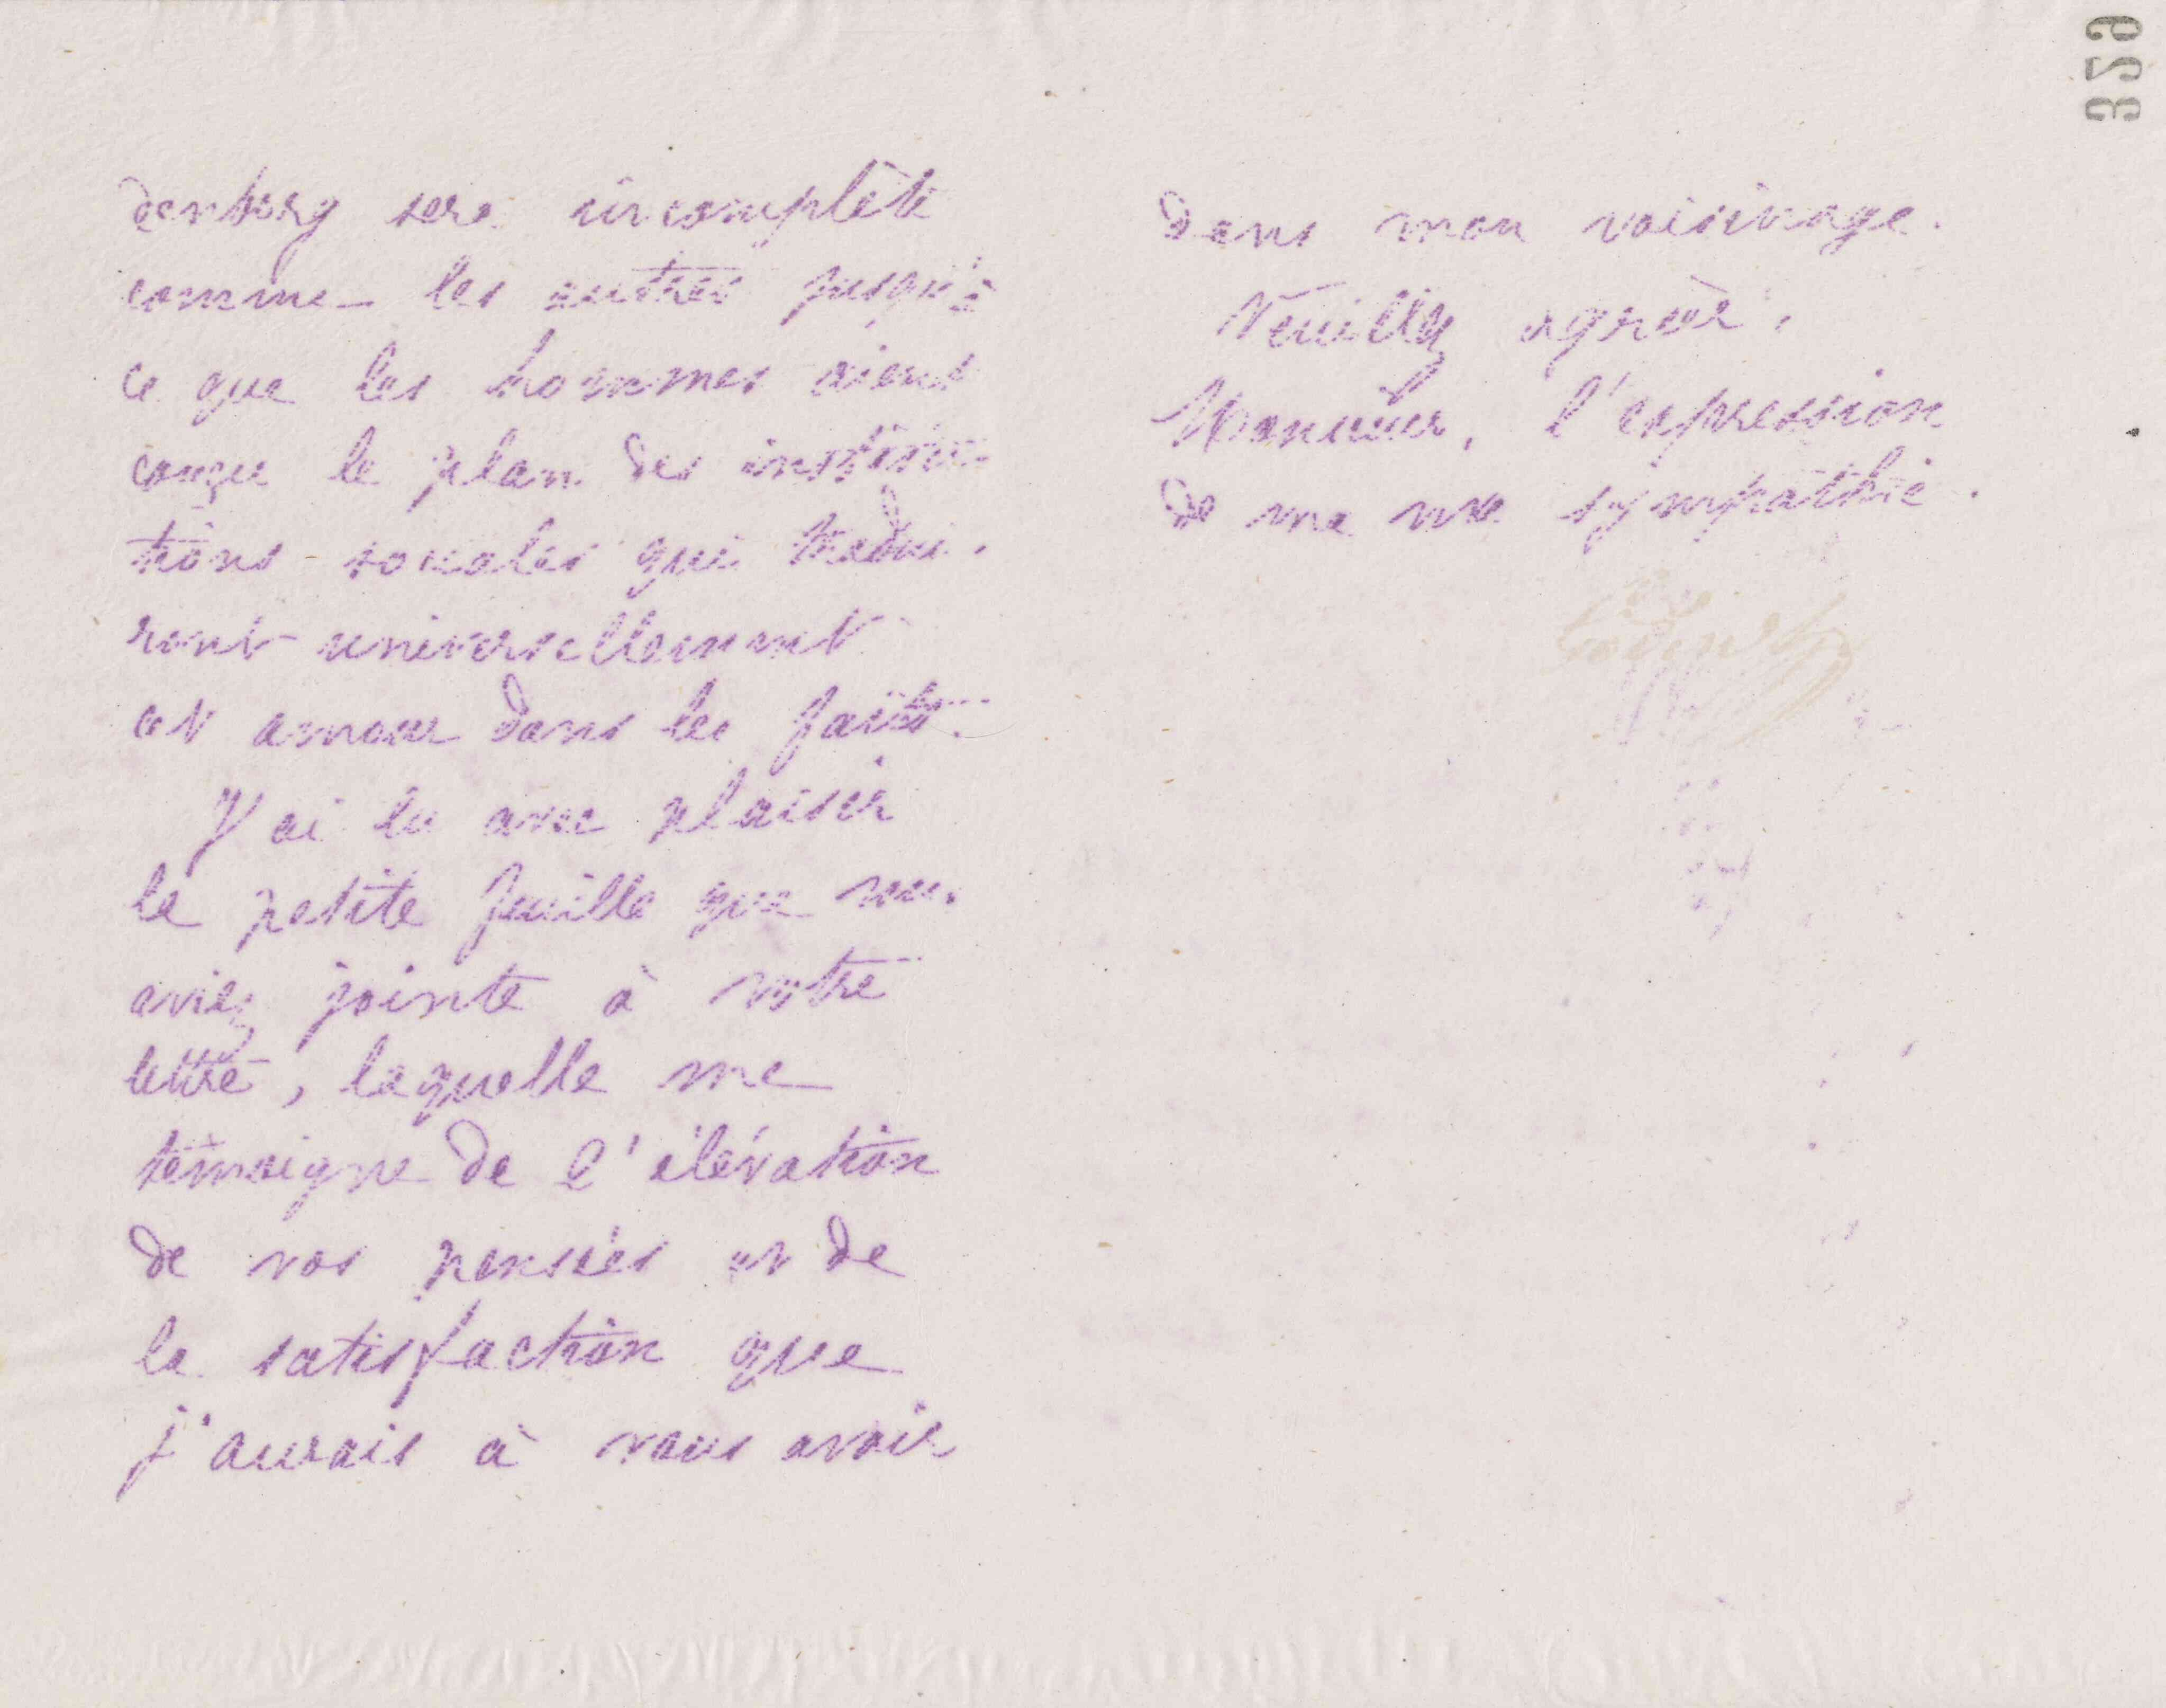 denborg sera incomplète
comme les autres jusqu'à
ce que les hommes aient
conçu le plan des institu-
tions sociales qui tradui-
ront universellement
cet amour dans les faits.
J'ai lu avec plaisir
la petite feuille que vous
aviez jointe à votre
lettre, laquelle me
témoigne de l'élévation
de vos pensées et de
la satisfaction que
j'aurais à vous avoir
dans mon voisinage.
Veuillez agréer,
Monsieur, l'expression
de ma vive sympathie.
Godin
329